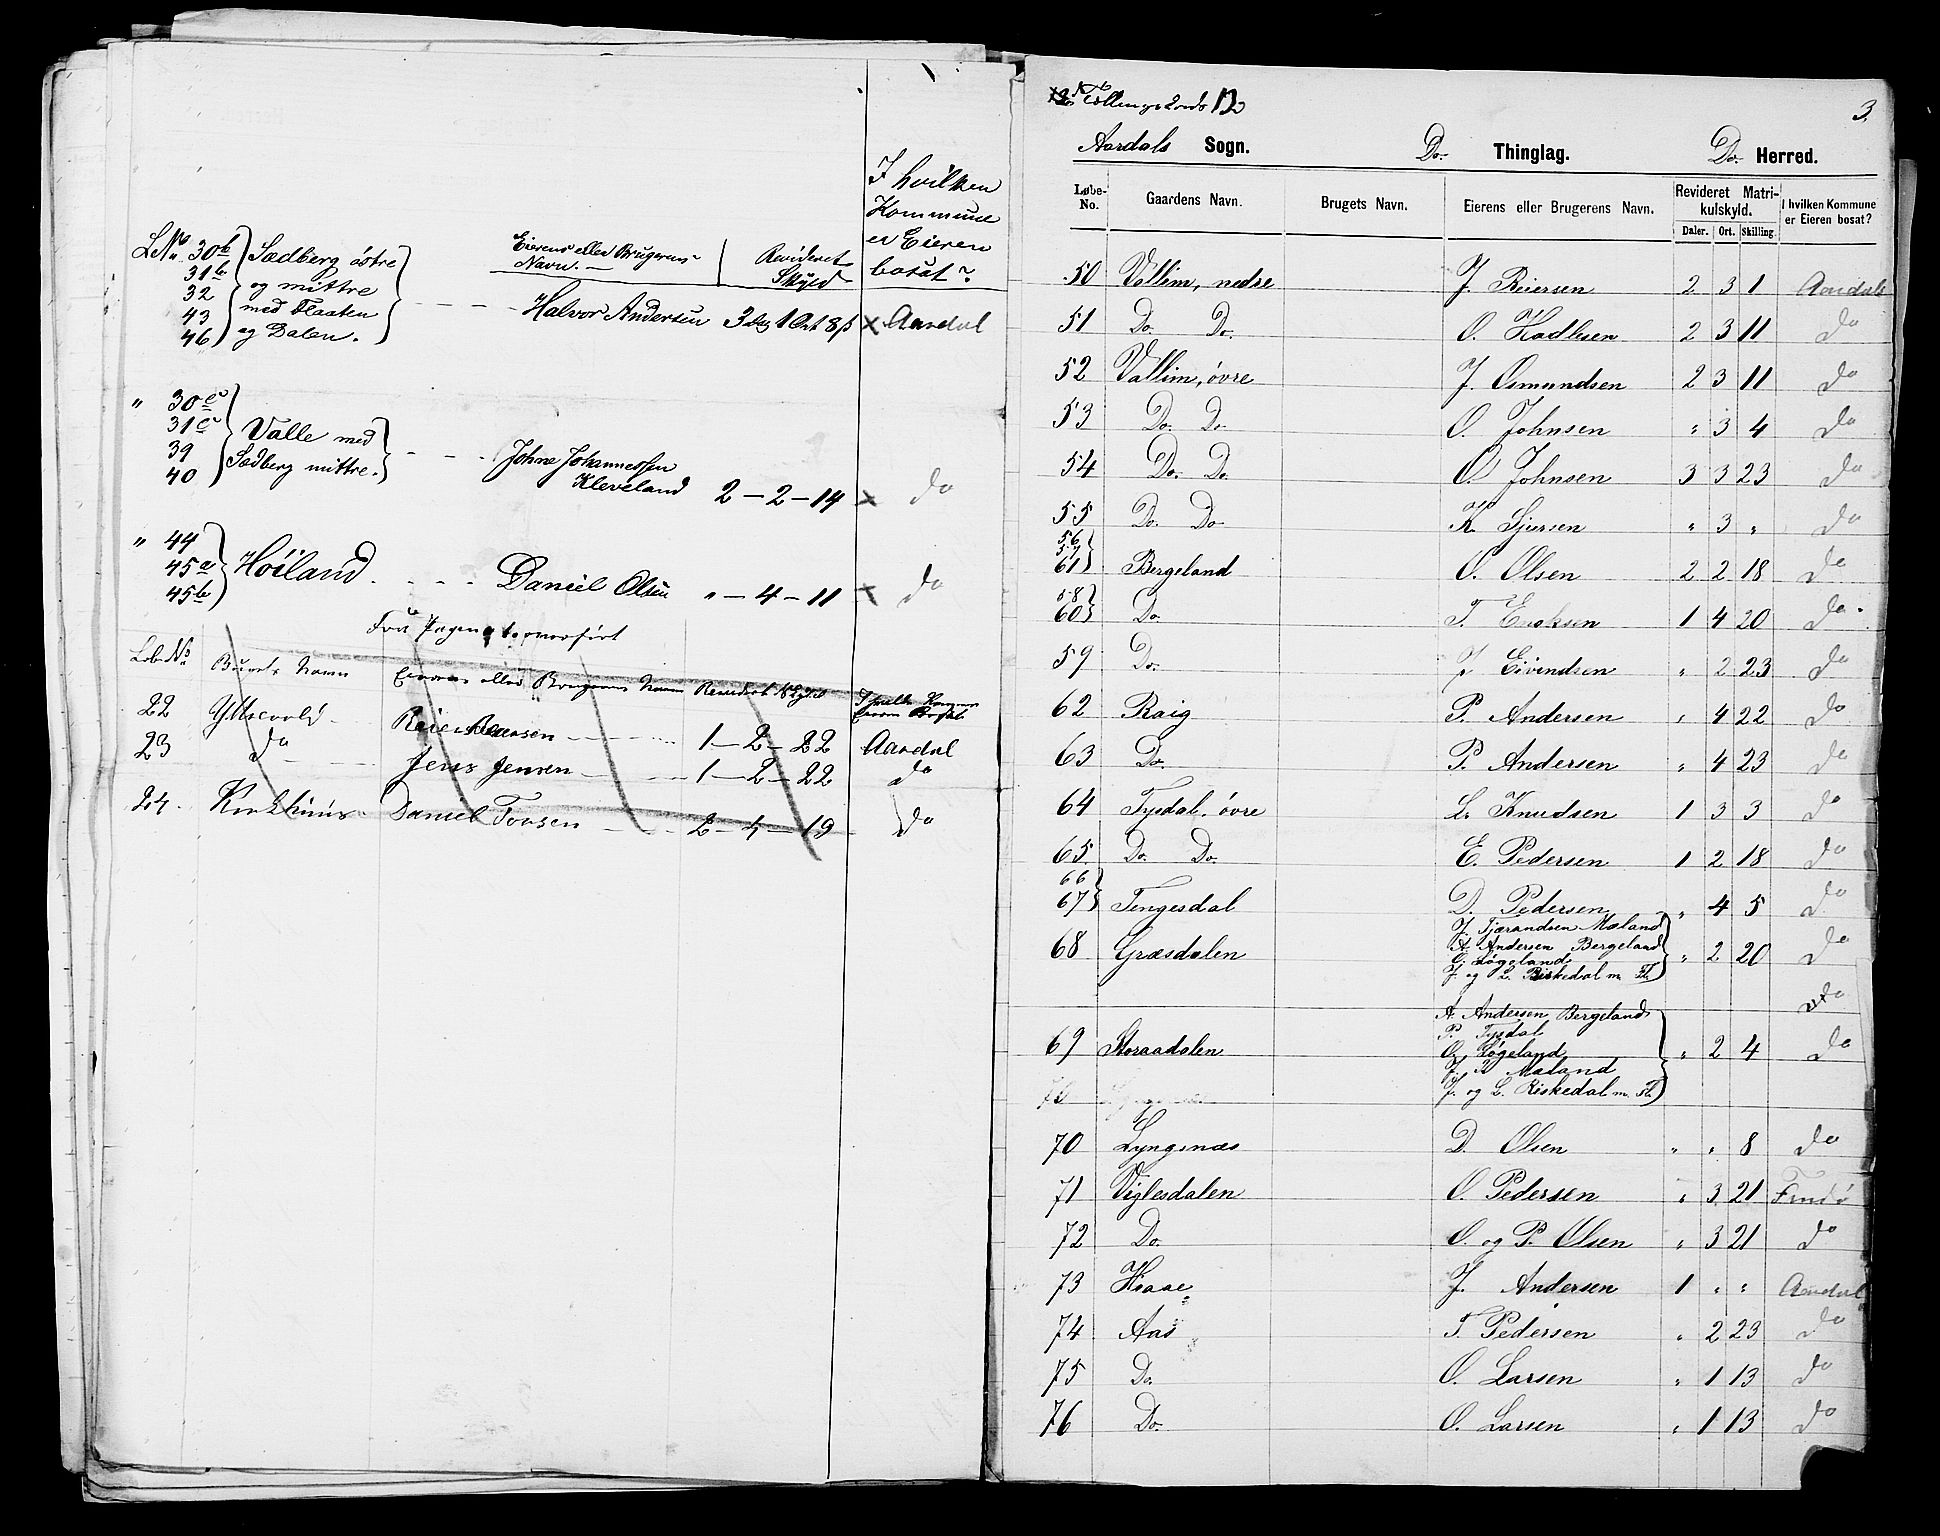 I hvilken
Kommune
er Eieren
bosat?
Eierens eller Brugerens Navn. — Revideret Skyld
LNo 30b Sædberg östre
31b og mittre
32 med Flaaten
43 og Dalen.
46
Halvor Andersen 3 1 Ort 8 ß x Aardal
" 30c
31c Valle med
39 Sædberg mittre.
40
Johne Johannessen
Kleveland 2 — 2 — 14 x do
" 44
45a Höiland
45b
Daniel Olsen " — 4 — 11 x do
Fra overført
LøbeNo Navn Eierens eller Brugerens Navn Revideret Skyld
22 1 — 2 — 22 Aardal
23 do Jens Jensen 1 — 2 — 22 do
24. Daniel 2 — 4 — 19 do
3.
Aardals Sogn. Do. Thinglag. Do. Herred.
Løbe-No. Gaardens Navn. Brugets Navn. Eierens eller Brugerens Navn. Revideret Matrikulskyld. I hvilken Kommune er Eieren bosat?
Daler. Ort. Skilling
50 Vallim, nedre J. Reiersen 2 3 1 Aardal
51 Do. Do. O. Hadlesen 2 3 11 do
52 Vallim, övre J. Osmundsen 2 3 11 do
53 Do. Do. O. Johnsen " 3 4 do
54 Do. Do. O. Johnsen 3 3 23 do
55 Do. Do. K. Sjursen " 3 " do
56
57
61 Bergeland O. Olsen 2 2 18 do
58
60 Do. T. Enoksen 1 4 20 do
59 Do. J. Eivendsen " 2 23 do
62 Raig P. Andersen " 4 22 do
63 Do. P. Andersen " 4 23 do
64 Tysdal, övre L. Knudsen 1 3 3 do
65 Do. Do. E. Pedersen 1 2 18 do
66
67 Tengesdal D. Pedersen " 4 5 do
68 Græsdalen J. Tjærandsen Mæland
A. Andersen Bergeland " 2 20 do
O. Løgeland
J. og L. Riskedal m. Fl.
do
A. Andersen Bergeland
P. Tysdal
69 Storaadalen O. Løgeland " 2 4 do
Mæland
70 J. og L. Riskedal m. Fl.
70 Lyngsnæs D. Olsen " " 8 do
71 Viglesdalen O. Pedersen " 3 21 Findö
72 Do. O. og P. Olsen " 3 21 do
73 Hiaae J. Andersen 1 " " Aardal
74 Aas T. Pedersen " 2 23 do
75 Do. O. Larsen " 1 13 do
76 Do. O. Larsen " 1 13 do